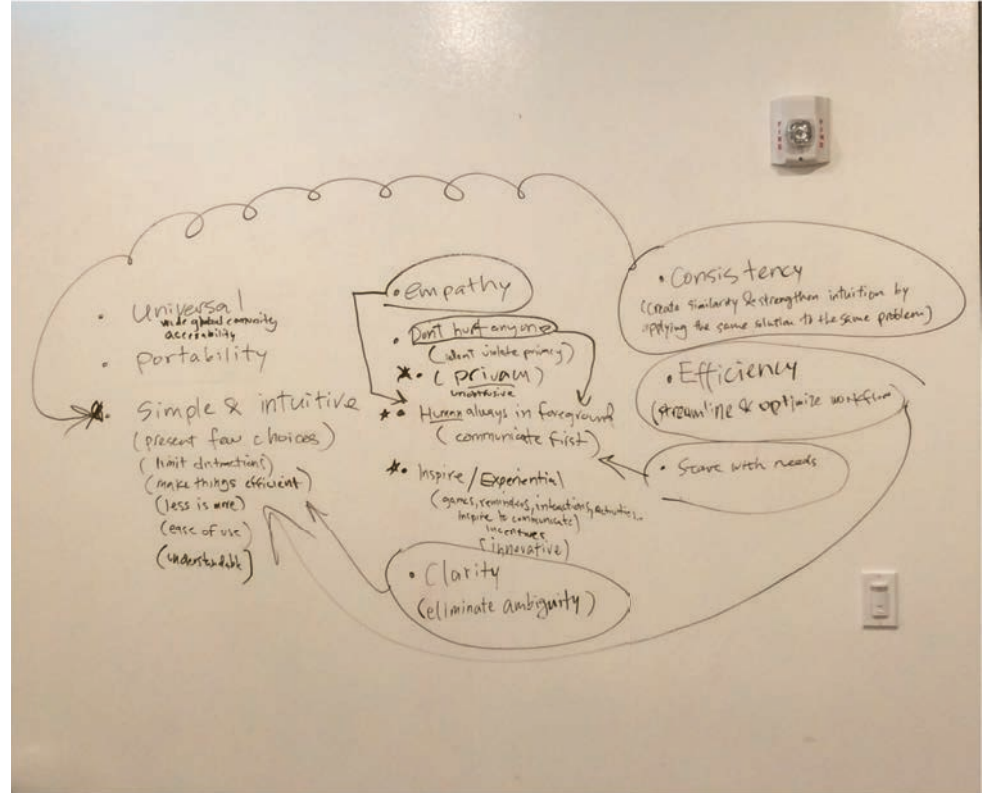 FIRE
FIRE
• Universal
wide global comunity
accessability
• Portability
• Simple & intuitive
(present few choices)
(limit distractions)
(make things efficient)
(less is more)
(ease of use)
(understandable)
• empathy
• Don't hurt anyone
(don't violate privacy)
• (privacy)
unobtrusive
• Human always in foreground
(communicate first)
• Inspire / Experiential
(games, reminders, interactions, activities,
inspire to communicate)
incentives
(innovative)
• Clarity
(eliminate ambiguity)
• Consistency
(Create similarity & strengthen intuition by
applying the same solution to the same problem)
• Efficiency
(streamline & optimize workflow)
• with needs